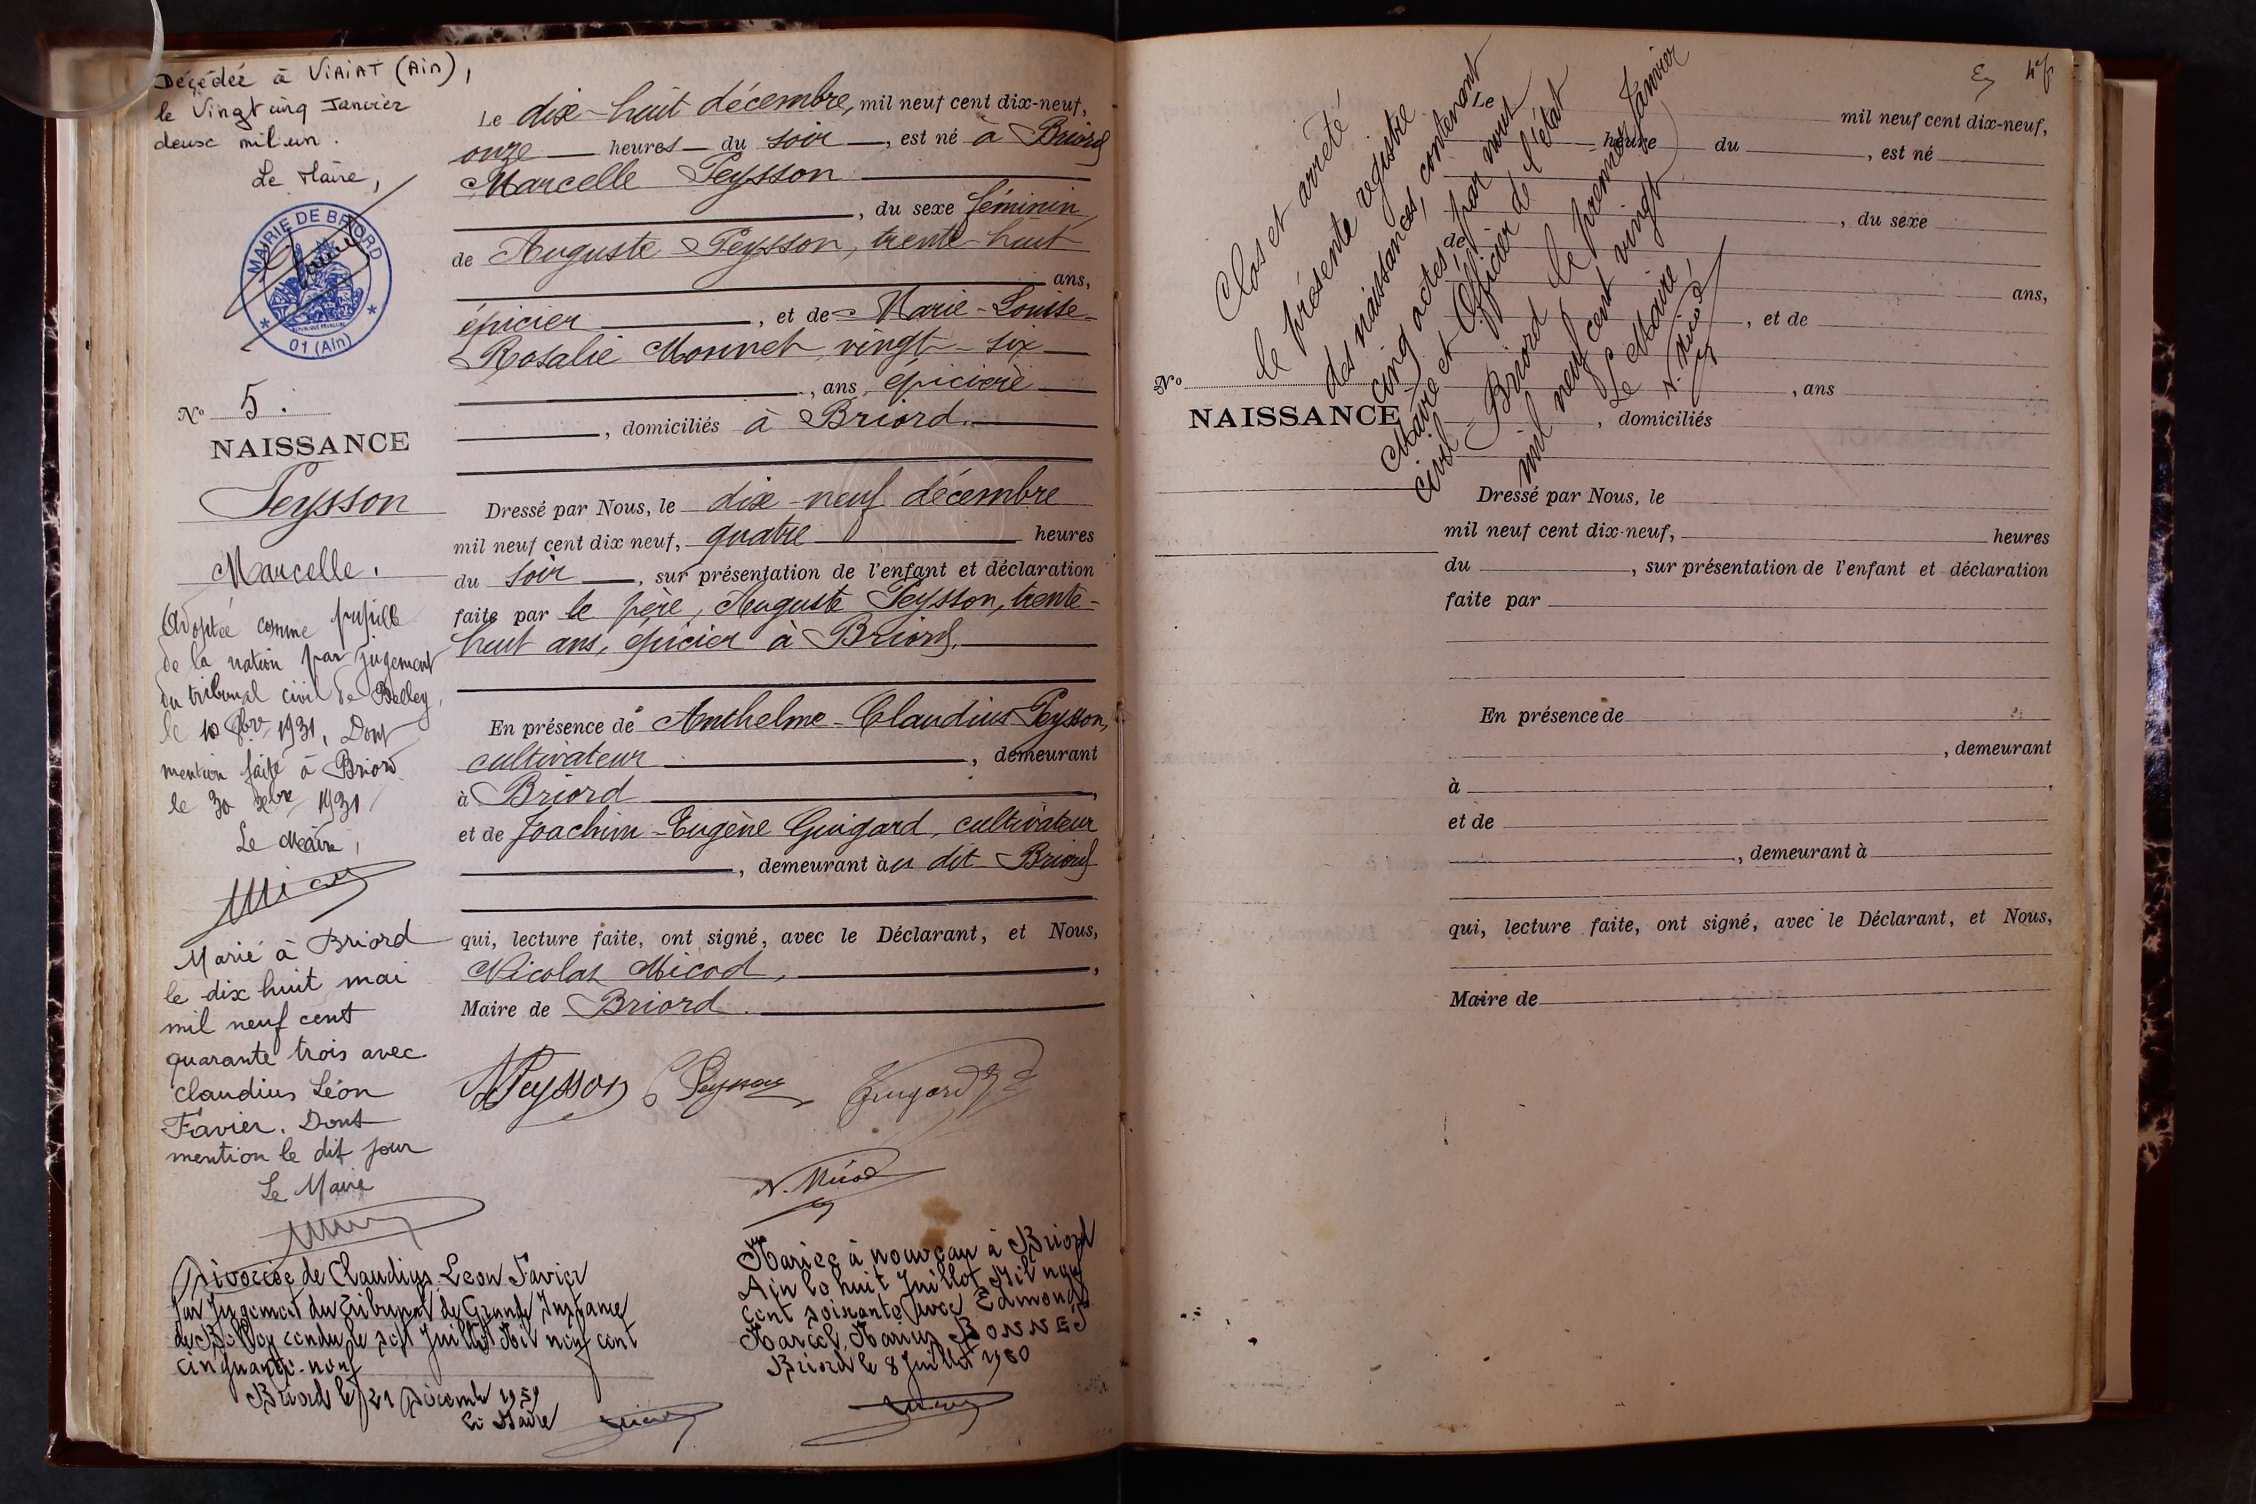 Décédée à VIRIAT (Ain),
le Vingt cinq Janvier
deux mil un.
Le Maire,
MAIRIE DE BRIORD
01 (Ain)
N° 5.
NAISSANCE
Peysson
Marcelle.
Adoptée comme pupille
de la nation par jugement
du tribunal civil de Belley,
le 10 9bre 1931, Dont
mention faite à Briord
le 30 xbre 1931
Le Maire,
Marié à Briord
le dix huit mai
mil neuf cent
quarante trois avec
Claudius Léon
Favier. Dont
mention le dit jour
Le Maire
Divorcée de Claudius Léon Favier
par Jugement du Tribunal de Grande Instance
de Belley rendu le sept Juillet Mil neuf cent
cinquante-neuf
Briord le 21 Décembre 1959
Le Maire
Le dix-huit décembre, mil neuf cent dix-neuf,
onze heures du soir, est né à Briord
Marcelle Peysson
, du sexe féminin,
de Auguste Peysson, trente-huit
ans,
épicier, et de Marie-Louise-
Rosalie Monnet, vingt-six
, ans, épicière
, domiciliés à Briord.
Dressé par Nous, le dix-neuf décembre
mil neuf cent dix neuf, quatre heures
du soir, sur présentation de l'enfant et déclaration
faite par le père, Auguste Peysson, trente-
huit ans, épicier à Briord.
En présence de Anthelme-Claudius Peysson,
cultivateur, demeurant
à Briord,
et de Joachim-Eugène Guigard, cultivateur
, demeurant àu dit Briord
qui, lecture faite, ont signé, avec le Déclarant, et Nous,
Nicolas Micod,
Maire de Briord.
APeysson C Peysson Guigard
N. Micod
Mariée à nouveau à Briord
Ain le huit Juillet Mil neuf
cent soixante avec Edmond
Marcel, Marius BONNET
Briord le 8 Juillet 1960
Clos et arrêté
le présente registre
des naissances, contenant
cinq actes, par nous
Maire et Officier de l'état
civil Briord le premier Janvier
mil neuf cent vingt
Le Maire,
N. Micod
N°
NAISSANCE
Le mil neuf cent dix-neuf,
heure du , est né
, du sexe
de
ans,
, et de
, ans
, domiciliés
Dressé par Nous, le
mil neuf cent dix-neuf, heures
du , sur présentation de l'enfant et déclaration
faite par
En présence de
, demeurant
à ,
et de
, demeurant à
qui, lecture faite, ont signé, avec le Déclarant, et Nous,
Maire de